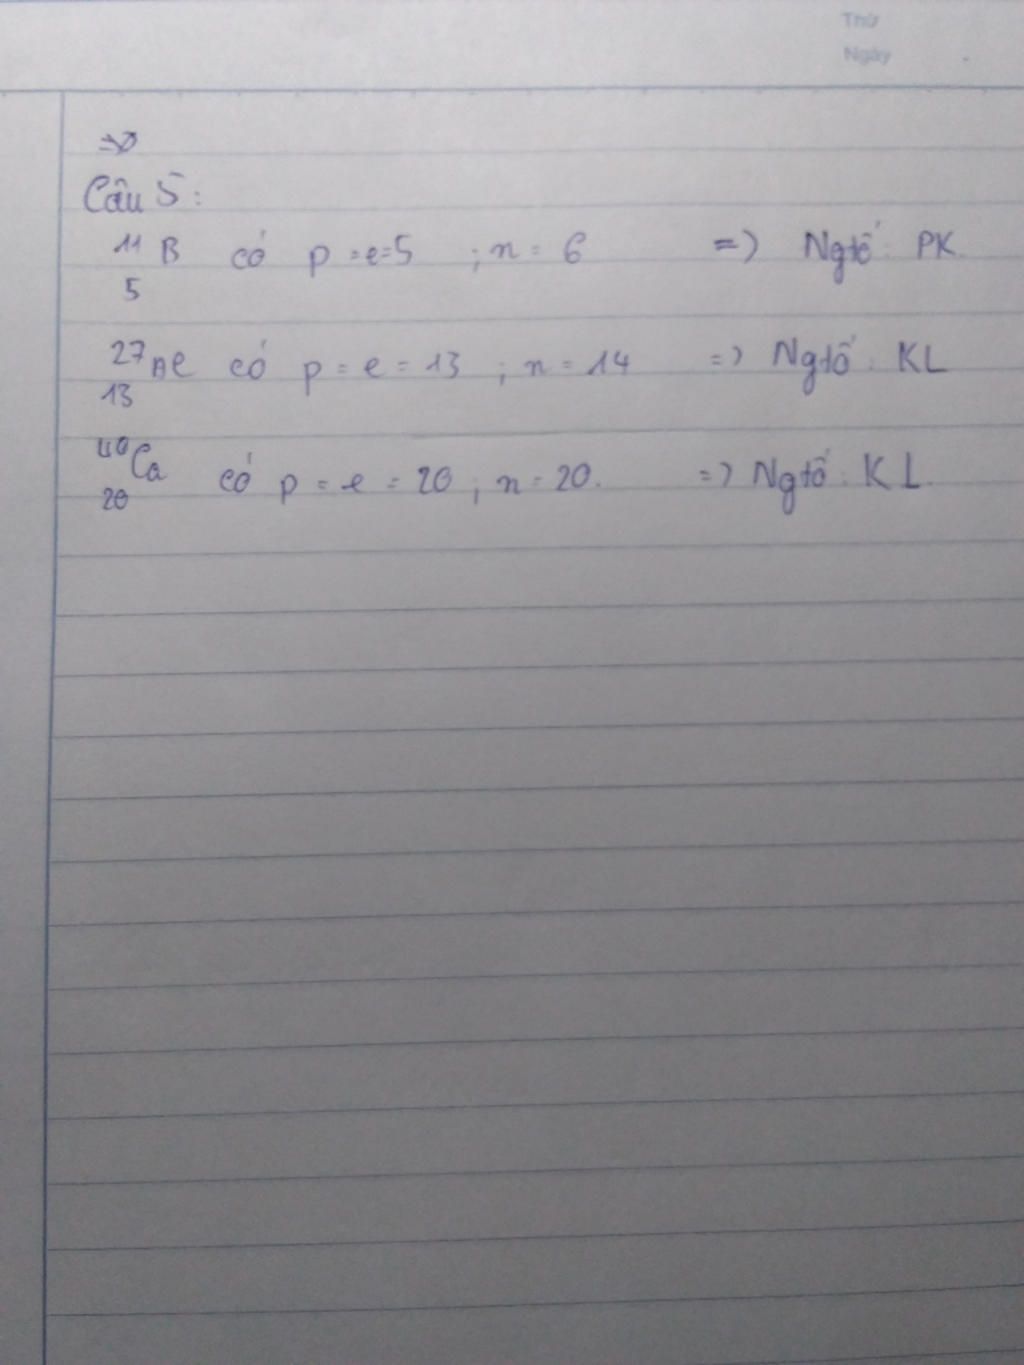 Thứ
Ngày
Câu 5:
11
B có p = e = 5 ; n = 6 => Ngtố: PK.
5
27
Al có p = e = 13 ; n = 14 => Ngtố: KL
13
40
Ca có p = e = 20 ; n = 20. => Ngtố: KL.
20